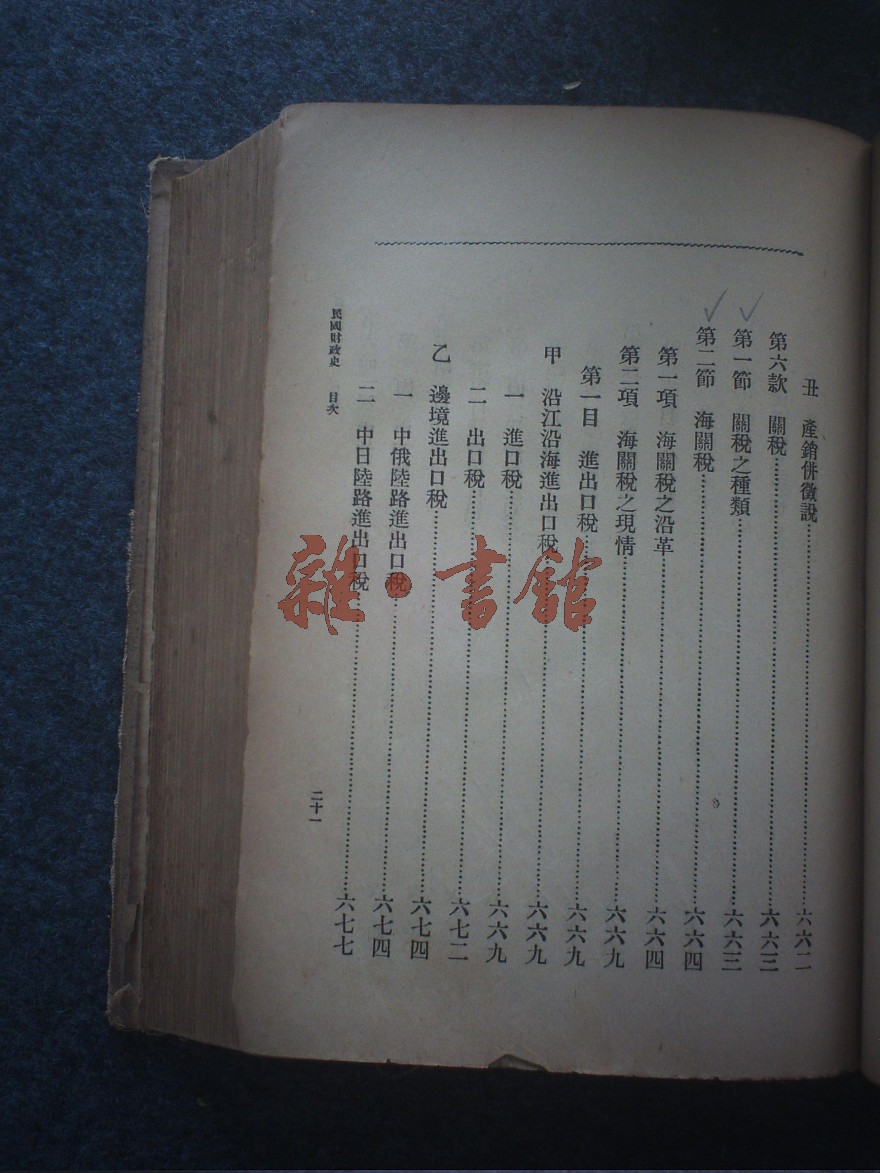 丑　產銷併徵說……六六二
第六款　關稅……六六三
第一節　關稅之種類……六六三
第二節　海關稅……六六四
第一項　海關稅之沿革……六六四
第二項　海關稅之現情……六六九
第一目　進出口稅……六六九
甲　沿江沿海進出口稅……六六九
一　進口稅……六六九
二　出口稅……六七二
乙　邊境進出口稅……六七四
一　中俄陸路進出口稅……六七四
二　中日陸路進出口稅……六七七
民國財政史　目次
二十一
雜·書館